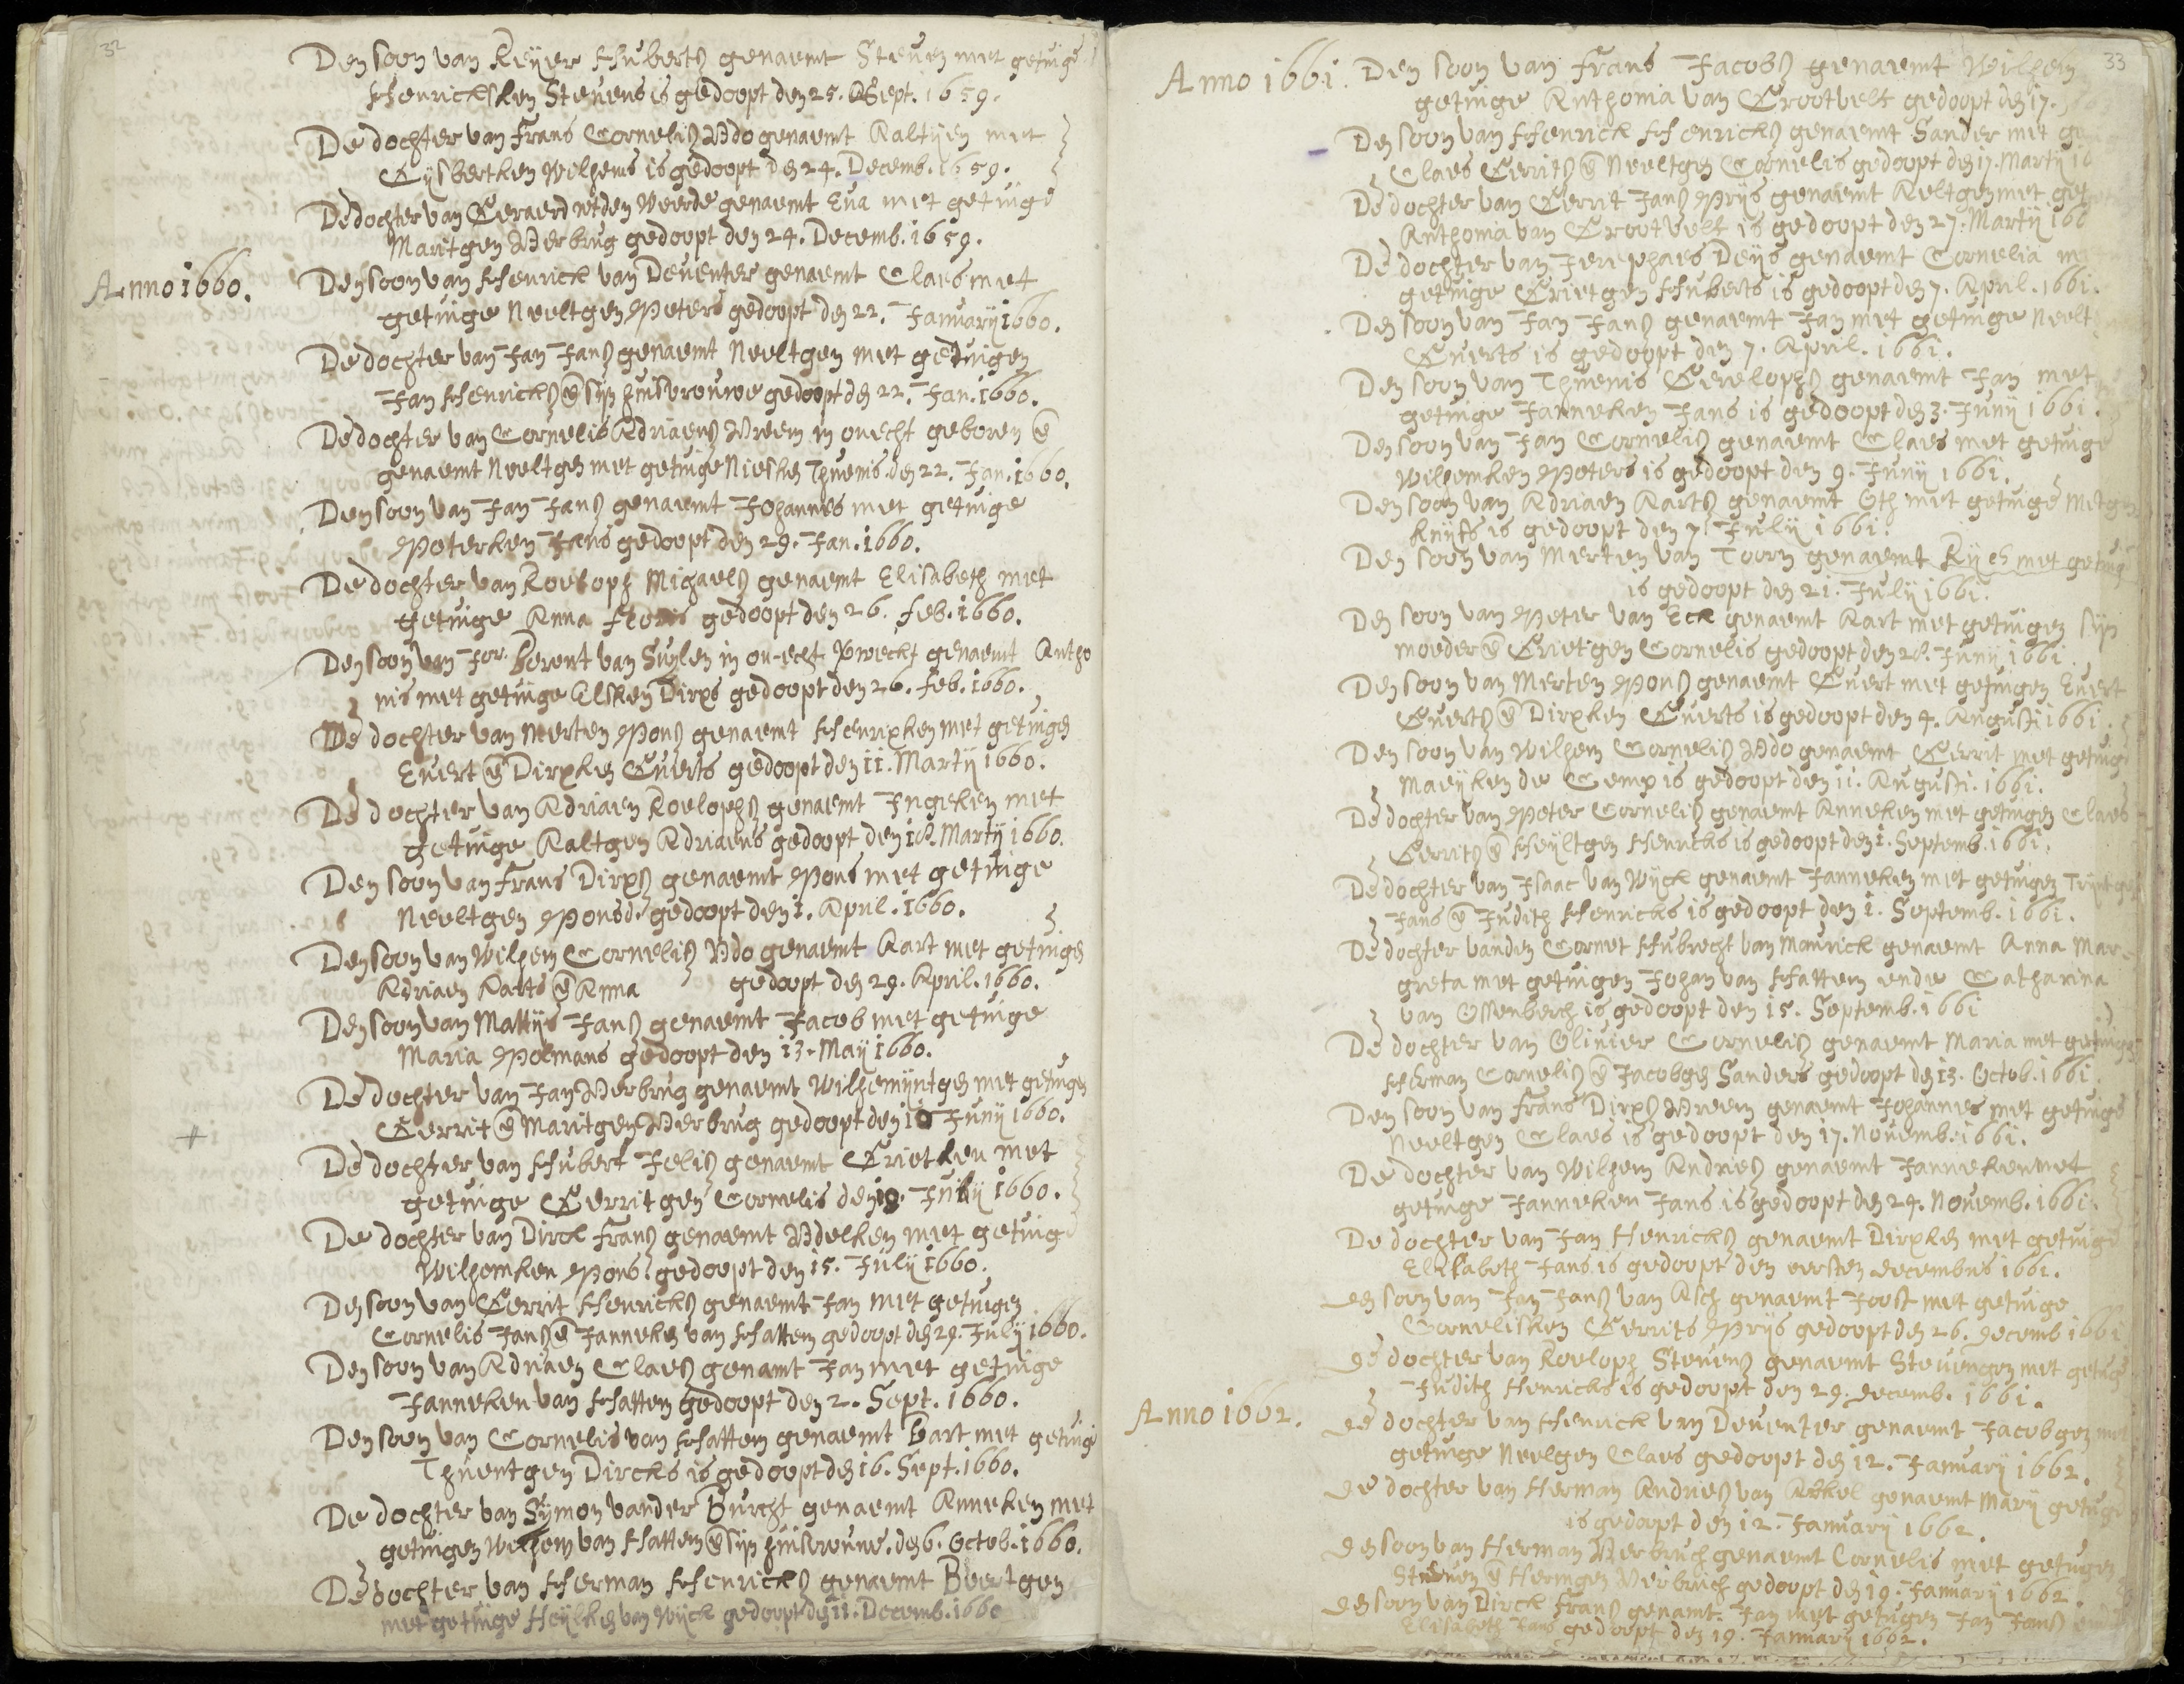 32
Den soon van Reijer Huberts genaemt Steven met getuige
Henricksken Stevens is gedoopt den 25. Sept. 1659.
De dochter van Frans Cornelis Udo genaemt Aaltijen met
Gijsbertken Wilhems is gedoopt den 24. Decemb. 1659.
De dochter van Geraerd wtden Weerde genaemt Eva met getuige
Maritgen Verbrug gedoopt den 24. Decemb. 1659.
Anno 1660.
Den soon van Henrick van Deventer genaemt Claes met
getuige Neeltgen Peters gedoopt den 22. Januarij 1660.
De dochter van Jan Jans genaemt Neeltgen met getuigen
Jan Henricks en sijn huisvrouwe gedoopt den 22. Jan. 1660.
De dochter van Cornelis Adriaens Vreem in onecht geboren en
genaemt Neeltgen met getuige Niesken Thuenis den 22. Jan. 1660.
Den soon van Jan Jans genaemt Johannes met getuige
Peterken Jans gedoopt den 29. Jan. 1660.
De dochter van Roeloph Michaels genaemt Elisabeth met
getuige Anna Floris gedoopt den 26. Feb. 1660.
Den soon van Jor. Berent van Suylen in on-echt verweckt genaemt Antho
nis met getuige Elsken Dirxs gedoopt den 26. Feb. 1660.
De dochter van Merten Pons genaemt Henrixken met getuigen
Evert en Dirxken Everts gedoopt den 11. Martij 1660.
De dochter van Adriaen Roelophs genaemt Ingeken met
getuige Aaltgen Adriaens gedoopt den 18. Martij 1660.
Den soon van Frans Dirxs genaemt Pons met getuige
Neeltgen Ponsd. gedoopt den 1. April. 1660.
Den soon van Wilhem Cornelis Udo genaemt Aart met getuigen
Adriaen Aarts en Anna gedoopt den 29. April. 1660.
Den soon van Mattijs Jans genaemt Jacob met getuige
Maria Polmans gedoopt den 13. Maij 1660.
De dochter van Jan Verbrug genaemt Wilhemijntgen met getuigen
Gerrit en Maritgen Verbrug gedoopt den 10 Junij 1660.
De dochter van Hubert Jelis genaemt Grietken met
getuige Gerritgen Cornelis den 19. Julij 1660.
De dochter van Dirck Frans genaemt Udelken met getuige
Wilhemken Pons. gedoopt den 15. Julij 1660.
Den soon van Gerrit Henricks genaemt Jan met getuigen
Cornelis Jans en Janneken van Hattem gedoopt den 29. Julij 1660.
Den soon van Adriaen Claes genamt Jan met getuige
Janneken van Hattem gedoopt den 2. Sept. 1660.
Den soon van Cornelis van Hattem genaemt Bart met getuige
Thuentgen Dircks is gedoopt den 16. Sept. 1660.
De dochter van Sijmon vander Burcht genaemt Anneken met
getuigen Wilhem van Hattem en sijn huisvrouwe. den 6. Octob. 1660.
De dochter van Herman Henricks genaemt Beertgen
met getuige Heylken van Wijck gedoopt den 11. Decemb. 1660
33
Anno 1661.
Den soon van Frans Jacobs genaemt Wilhem
getuige Anthonia van Grootvelt gedoopt den 17.
Den soon van Henrick Henricks genaemt Sander met
Claes Gerrits en Neeltgen Cornelis gedoopt den 17. Martij
De dochter van Gerrit Jans Prijs genaemt Aeltgen met
Anthonia van Grootvelt is gedoopt den 27. Martij
De dochter van Jerephaes Deijs genaemt Cornelia
getuige Grietgen Huberts is gedoopt den 7. April. 1661.
Den soon van Jan Jans genaemt Jan met getuige
Everts is gedoopt den 7. April. 1661.
Den soon van Thuenis Gerelophs genaemt Jan met
getuige Janneken Jans is gedoopt den 3. Junij 1661.
Den soon van Jan Cornelis genaemt Claes met getuige
Wilhemken Peters is gedoopt den 9. Junij 1661.
Den soon van Adriaen Aarts genaemt Oth met getuige Metgen
Knijfs is gedoopt den 7. Julij 1661.
Den soon van Merten van Toorn genaemt met getuige
is gedoopt den 21. Julij 1661.
Den soon van Peter van Eck genaemt Aart met getuigen sijn
moeder en Grietgen Cornelis gedoopt den 28. Junij 1661
Den soon van Merten Pons genaemt Evert met getuigen Evert
Everts en Dirxken Everts is gedoopt den 4. Augusti 1661.
Den soon van Wilhem Cornelis Udo genaemt Gerrit met getuige
Maeijken de Gemp is gedoopt den 11. Augusti. 1661.
De dochter van Peter Cornelis genaemt Anneken met getuigen Claes
Gerrits en Heyltgen Henricks is gedoopt den 1. Septemb. 1661.
De dochter van Isaac van Wijck genaemt Janneken met getuigen Trijntgen
Jans en Judith Henricks is gedoopt den 1. Septemb. 1661.
De dochter vanden Cornet Hubrecht van Maurick genaemt Anna Mar-
greta met getuigen Johan van Hattem ende Catharina
van Ossenberch is gedoopt den 15. Septemb. 1661
De dochter van Olivier Cornelis genaemt Maria met getuigen
Herman Cornelis en Jacobgen Sanders gedoopt den 13. Octob. 1661.
Den soon van Frans Dirxs Vreem genaemt Johannes met getuige
Neeltgen Claes is gedoopt den 17. Novemb. 1661.
De dochter van Wilhem Andries genaemt Janneken met
getuige Janneken Jans is gedoopt den 24. Novemb. 1661.
De dochter van Jan Henricks genaemt Dirxken met getuige
Elisabeth Jans is gedoopt den eersten decembris 1661.
den soon van Jan Jans van Asch genaemt Joost met getuige
Cornelisken Gerrits Prijs gedoopt den 26. decemb 1661
de dochter van Roeloph Stevens genaemt Stevengen met getuige
Judith Henricks is gedoopt den 29. decemb. 1661.
Anno 1662.
de dochter van Henrick van Deventer genaemt Jacobgen met
getuige Neelgen Claes gedoopt den 12. Januarij 1662.
de dochter van Herman Andries van Arkel genaemt Marij getuige
is gedoopt den 12. Januarij 1662.
den soon van Herman Verbruch genaemt Cornelis met getugen
Steven en Hermgen Verbruch gedoopt den 19. Januarij 1662.
den soon van Dirck Frans genamt. Jan met getugen Jan Jans
Elisabeth Jans gedoopt den 19. Januarij 1662.